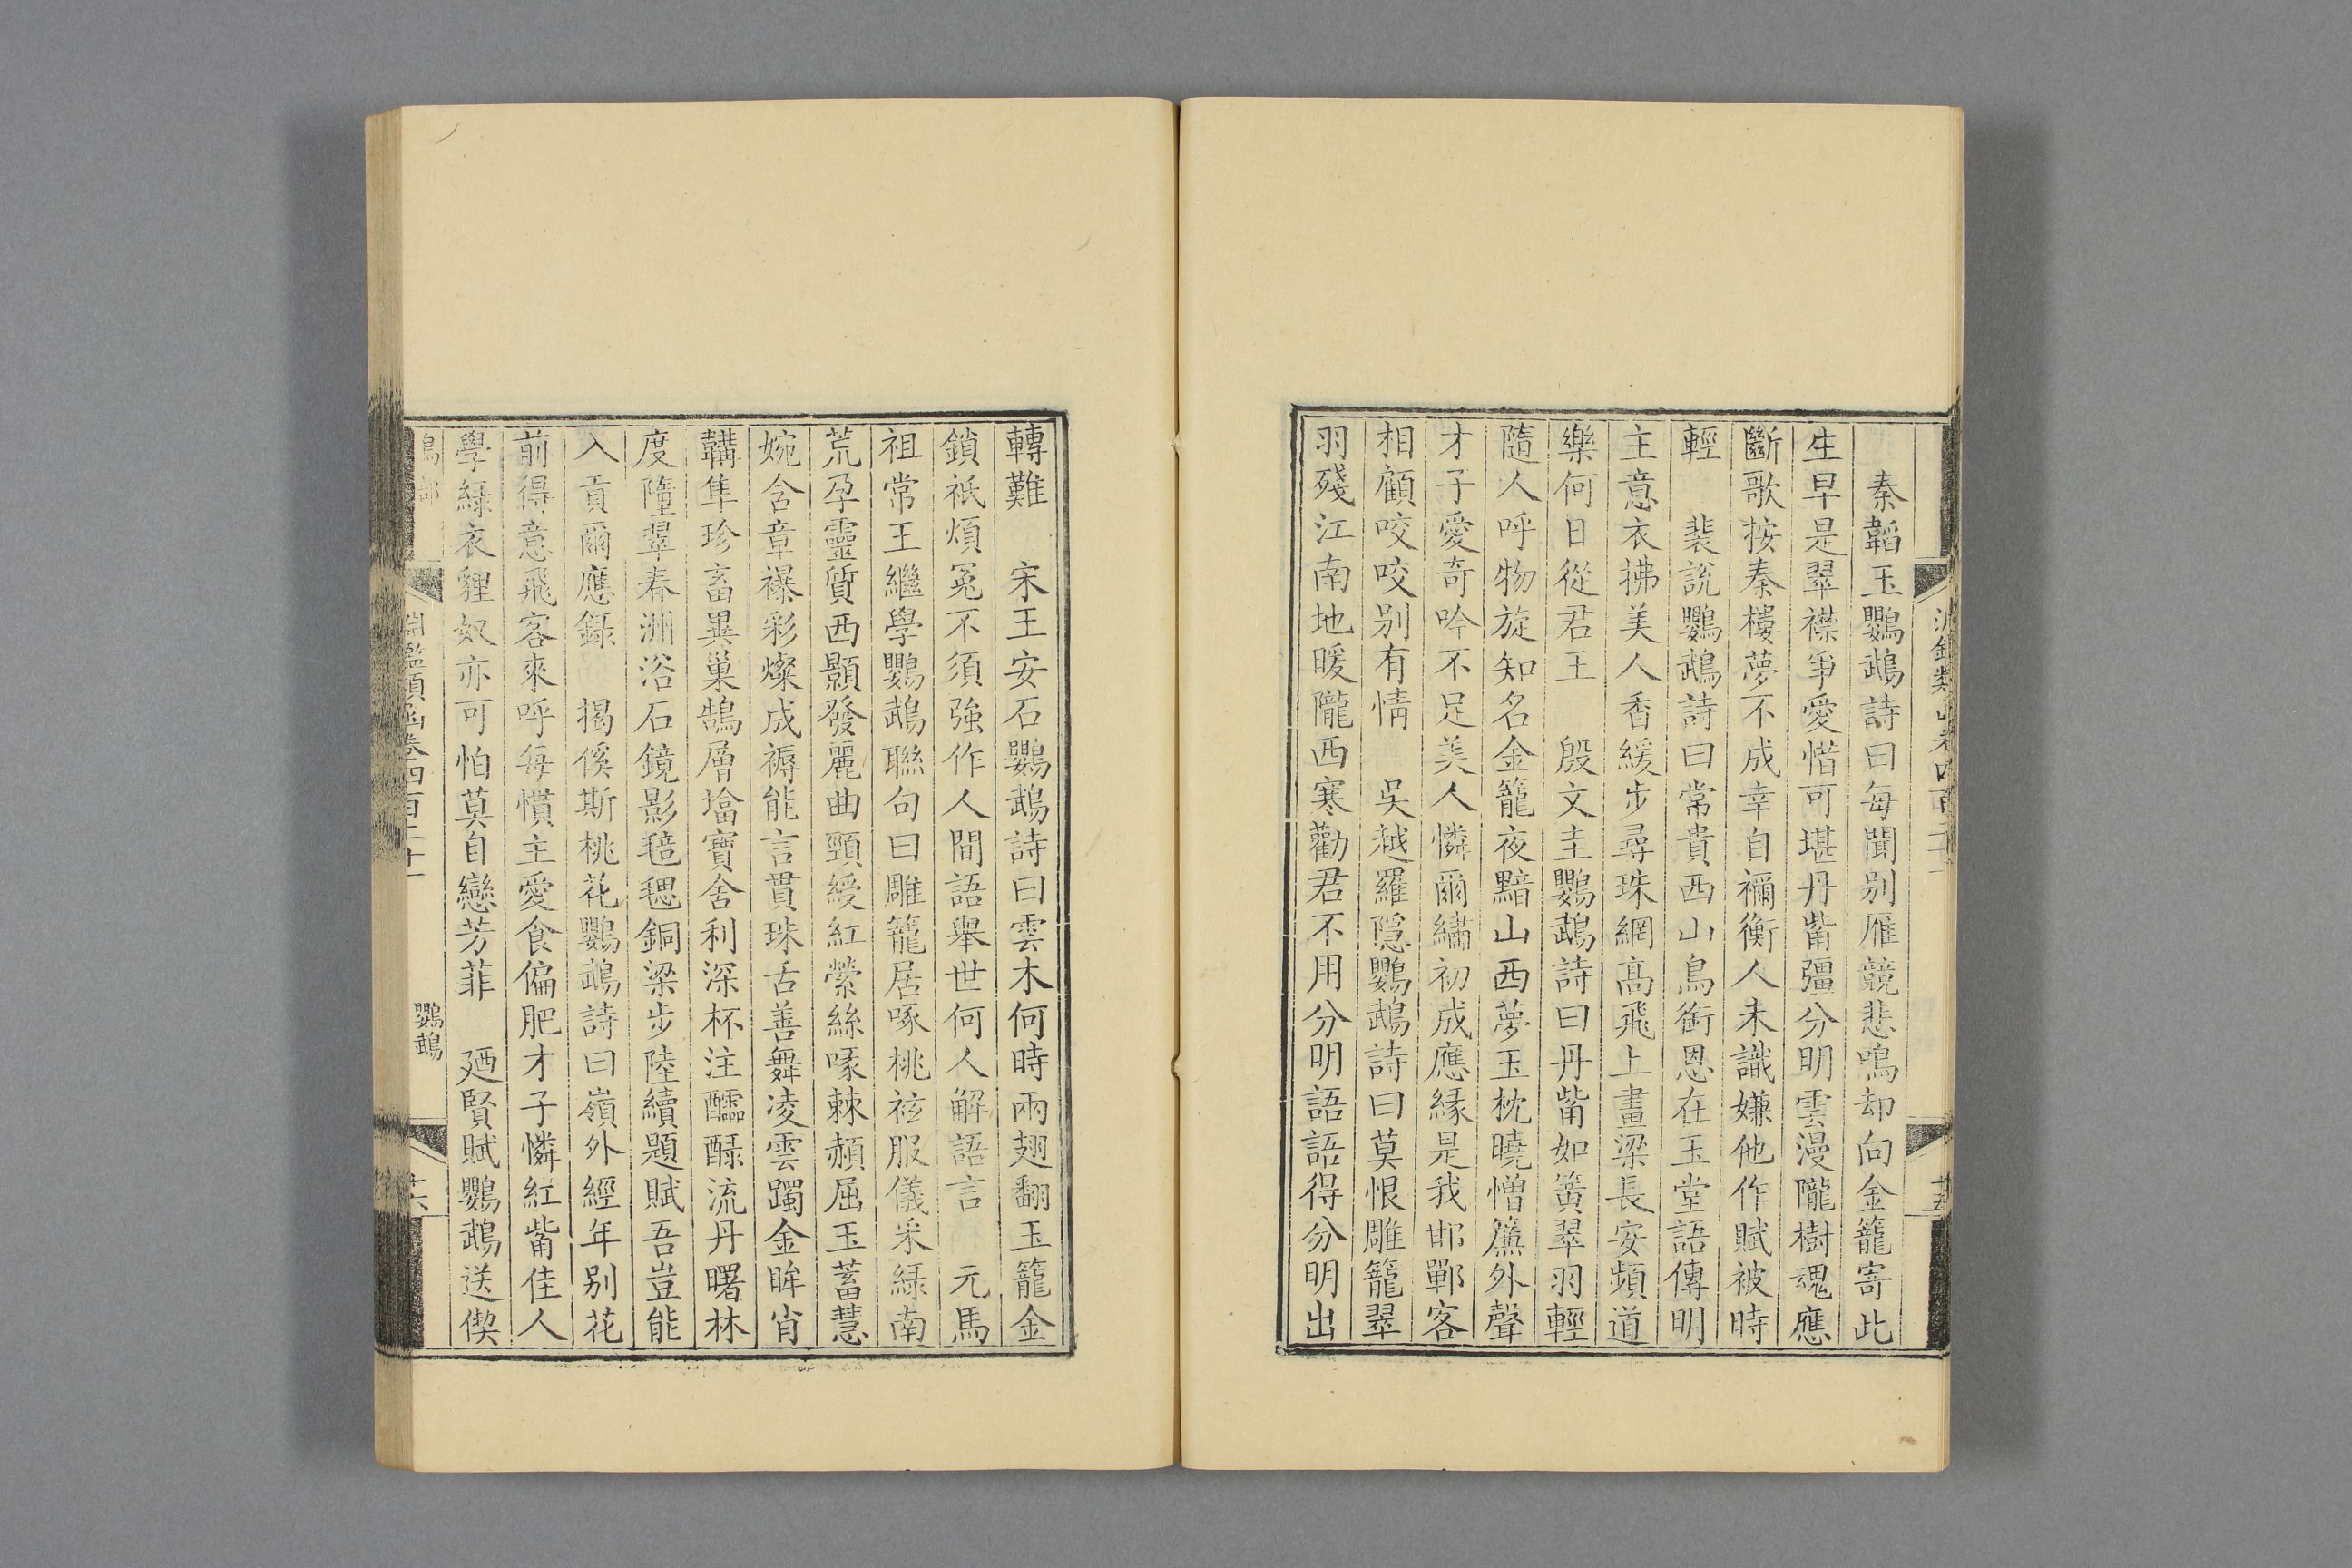 淵鑑類函卷四百二十一
十五
秦韜玉鸚鵡詩曰每聞别雁競悲鳴却向金籠寄此
生早是翠襟爭愛惜可堪丹觜彊分明雲漫隴樹魂應
斷歌按秦樓夢不成幸自禰衡人未識嫌他作賦被時
輕　裴說鸚鵡詩曰常貴西山鳥銜恩在玉堂語傳明
主意衣拂美人香緩步尋珠網高飛上畫梁長安頻道
樂何日從君王　殷文圭鸚鵡詩曰丹觜如簧翠羽輕
隨人呼物旋知名金籠夜黯山西夢玉枕曉憎簾外聲
才子愛奇吟不足美人憐爾繡初成應緣是我邯鄲客
相顧咬咬别有情　吳越羅隱鸚鵡詩曰莫恨雕籠翠
羽殘江南地暖隴西寒勸君不用分明語語得分明出
轉難　宋王安石鸚鵡詩曰雲木何時兩翅翻玉籠金
鎖祇煩冤不須強作人間語舉世何人解語言　元馬
祖常王繼學鸚鵡聯句曰雕籠居啄桃袨服儀采綠南
荒孕靈質西顥發麗曲頸綬紅縈絲喙棘赬屈玉蓄慧
婉含章襮彩燦成褥能言貫珠舌善舞凌雲躅金眸肖
鞲隼珍畜異巢鵠層㙮寶舍利深杯注醽醁流丹曙林
度墮翠春洲浴石鏡影毰毸銅梁步陸續題賦吾豈能
入貢爾應錄　揭傒斯桃花鸚鵡詩曰嶺外經年别花
前得意飛客來呼每慣主愛食偏肥才子憐紅觜佳人
學綠衣貍奴亦可怕莫自戀芳菲　廼賢賦鸚鵡送偰
鳥部
淵鑑類函卷四百二十一
鸚鵡
十六